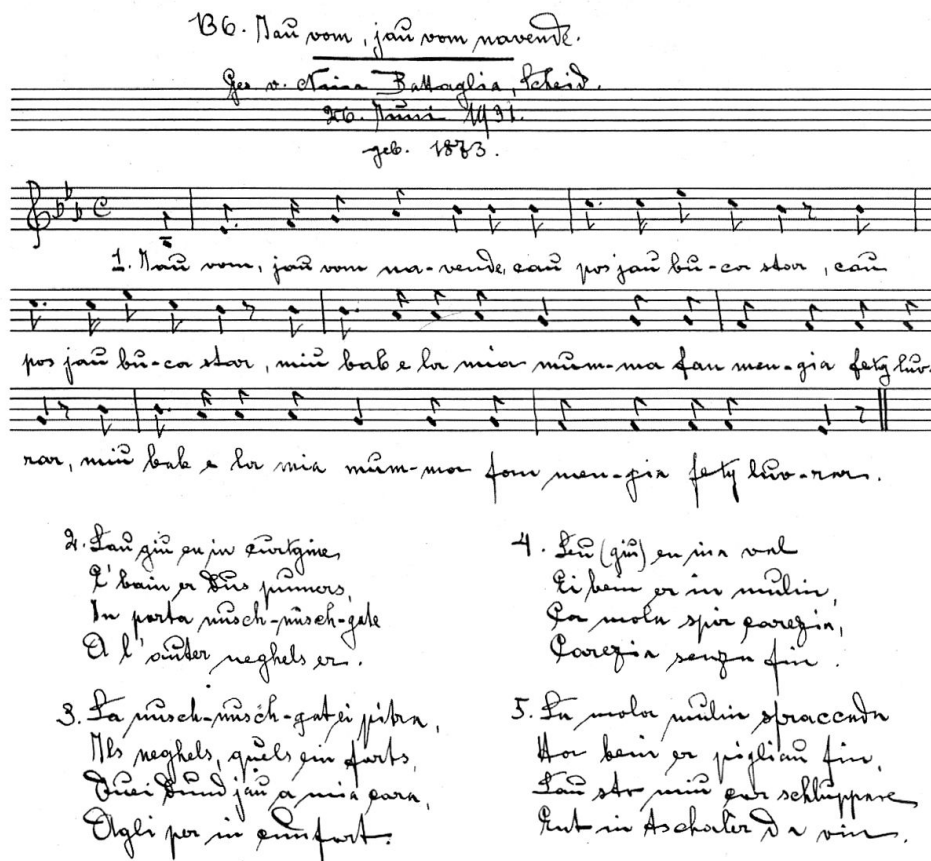 136. Jau vom, jau vom navende.
Ges. v. Nina Battaglia, Scheid.
26. Juni 1931.
geb. 1873.
1. Jau vom, jau vom na-vende, cau pos jau bu-ca star, cau
pos jau bu-ca star, miu bab e la mia mum-ma fan men-gia fetg luv-
rar, miu bab e la mia mum-ma fan men-gia fetg luv-rar.
2. Lau giu en in curtgin
E' bain er dus pumers,
In porta nusch-nusch-gate
A l'auter neghels er.
3. La nusch-nusch-gat ei pitra,
Ils neghels, quels ein forts,
Quei dund jau a mia cara,
Agli per in cumfort.
4. Leu (giu) en ina val
Ei bein er in mulin,
Ca mola spir carezia,
Carezia senza fin.
5. La mola mulin spraccada
Ha bein er pigliau fin,
Lau sto miu cor schluppare
Ent in Aschaler da vin.